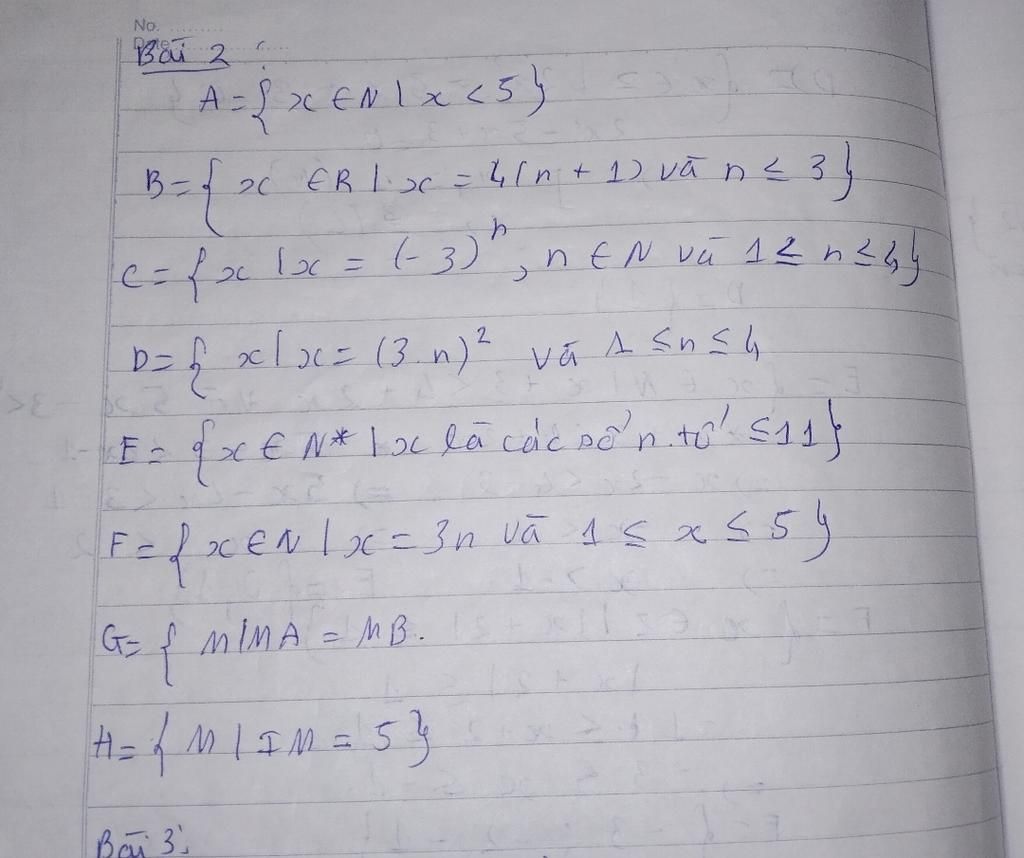 No.
Date
Bài 2:
A = { x ∈ N | x < 5 }
B = { x ∈ R | x = 4(n + 1) và n ≤ 3 }
C = { x | x = (-3)ⁿ, n ∈ N và 1 ≤ n ≤ 4 }
D = { x | x = (3.n)² và 1 ≤ n ≤ 4
E = { x ∈ N* | x là các số n.tố ≤ 11 }
F = { x ∈ N | x = 3n và 1 ≤ x ≤ 5 }
G = { M | MA = MB.
H = { M | IM = 5 }
Bài 3: